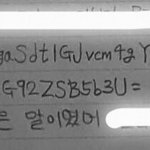 gaSdtIGJvcm4gY
G92ZSB5b3U=
은 말이였어